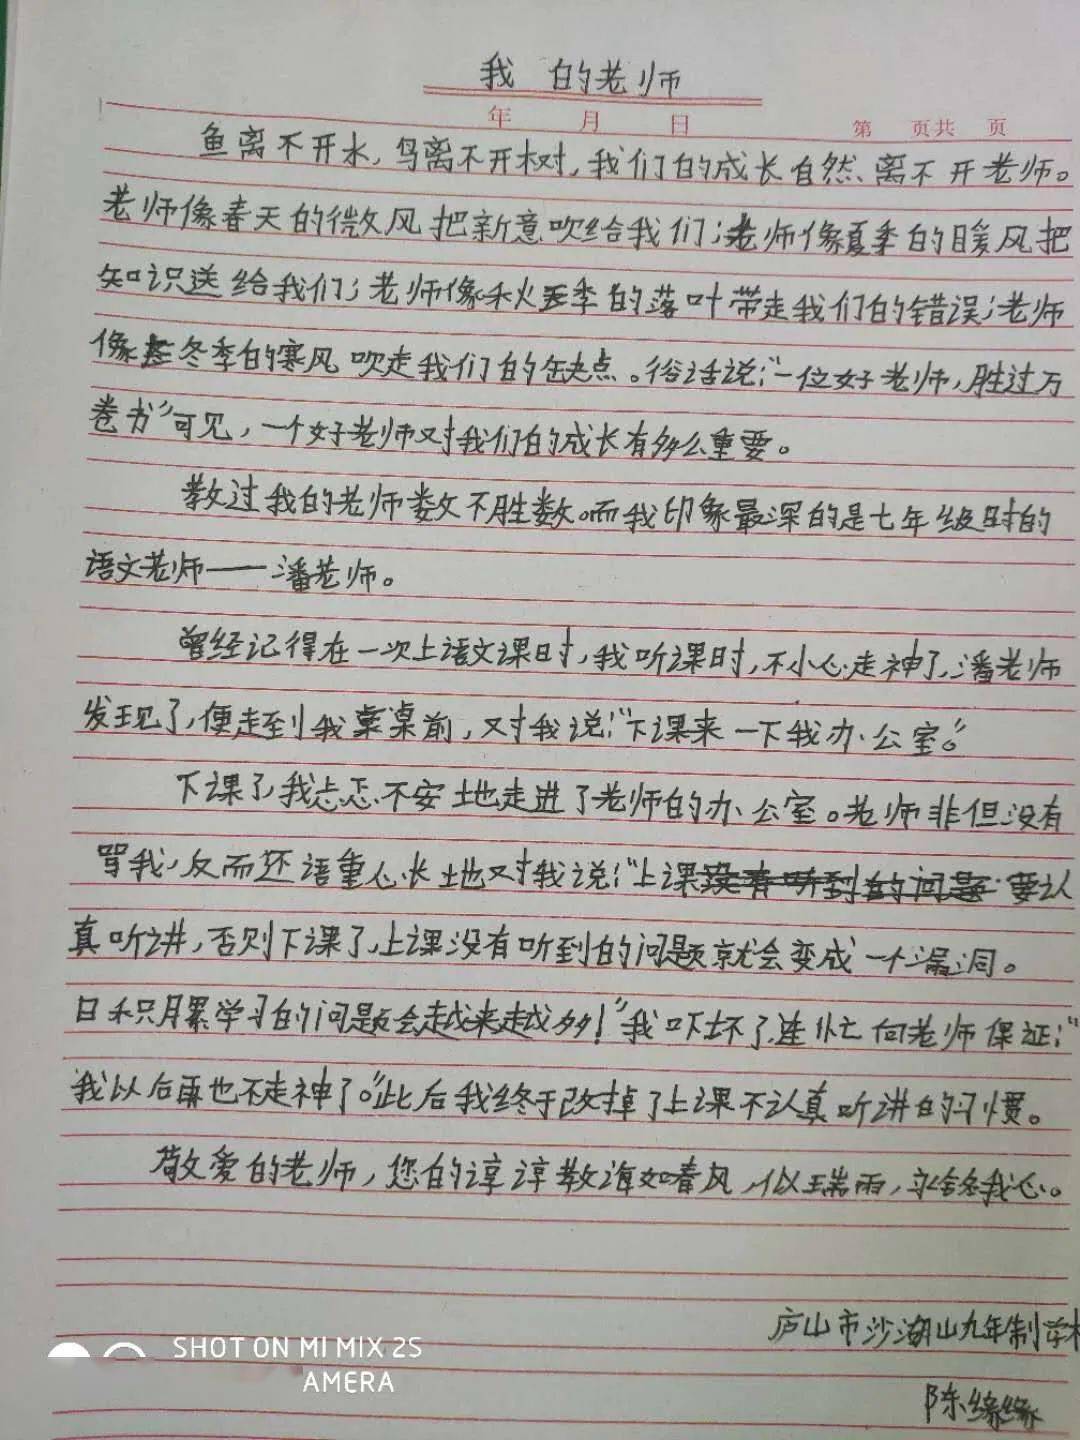 我的老师
年 月 日
第 页共 页
鱼离不开水，鸟离不开树，我们的成长自然、离不开老师。
老师像春天的微风把新意吹给我们；老师像夏季的暖风把
知识送给我们；老师像秋季的落叶带走我们的错误；老师
像冬季的寒风吹走我们的缺点。俗话说：“一位好老师，胜过万
卷书”可见，一个好老师对我们的成长有多么重要。
教过我的老师数不胜数。而我印象最深的是七年级时的
语文老师——潘老师。
曾经记得在一次上语文课时，我听课时，不小心走神了，潘老师
发现了，便走到我桌前，对我说：“下课来一下我办公室。”
下课了，我忐忑不安地走进了老师的办公室。老师非但没有
骂我，反而还语重心长地对我说：“上课要认
真听讲，否则下课了，上课没有听到的问题就会变成一个漏洞。
日积月累学习的问题会越来越多！”我吓坏了，连忙向老师保证：“
我以后再也不走神了。”此后我终于改掉了上课不认真听讲的习惯。
敬爱的老师，您的谆谆教诲如春风，似瑞雨，永铭我心。
庐山市沙湖山九年制学校
陈缘缘
SHOT ON MI MIX 2S
AMERA